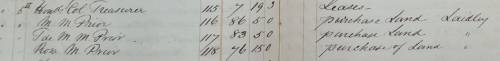 " 5th Honbl Col Treasurer 115 7 19 3 Leases
" " M M Prior 116 86 5 0 purchase Land Laidley
" " M M Prior 117 83 5 0 purchase Land "
" " Rosa M Prior 118 76 15 0 purchase of Land "